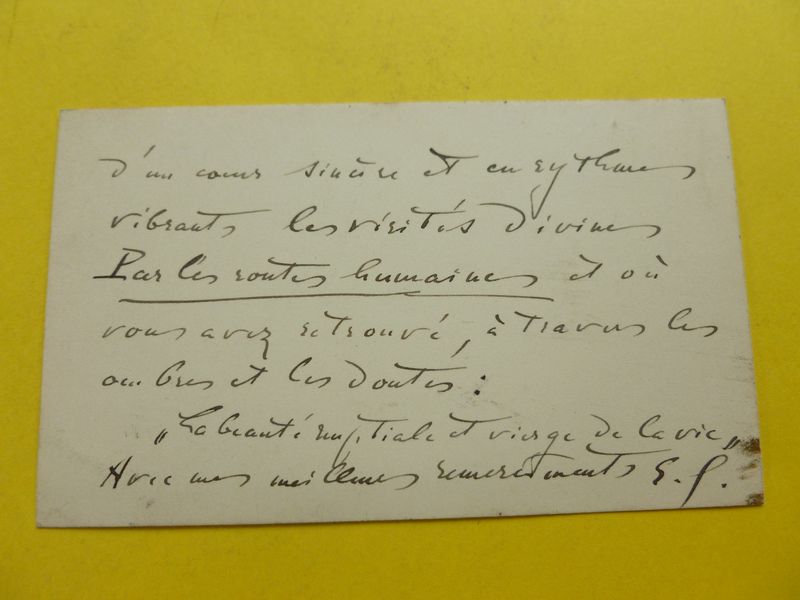 d'un cœur sincère et en rythmes
vibrants les vérités divines
Par les routes humaines et où
vous avez retrouvé, à travers les
ombres et les doutes :
„La beauté nuptiale et vierge de la vie„
Avec mes meilleurs remerciments